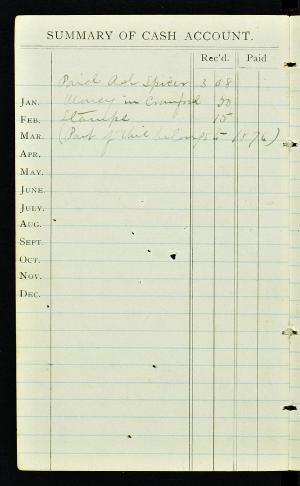 SUMMARY OF CASH ACCOUNT.
Rec'd. Paid
Paid Ad Spicer 3 08
JAN. Money in 50
FEB. Stamps 15
MAR. (Part of this belongs
APR.
MAY.
JUNE.
JULY.
AUG.
SEPT.
OCT.
NOV.
DEC.